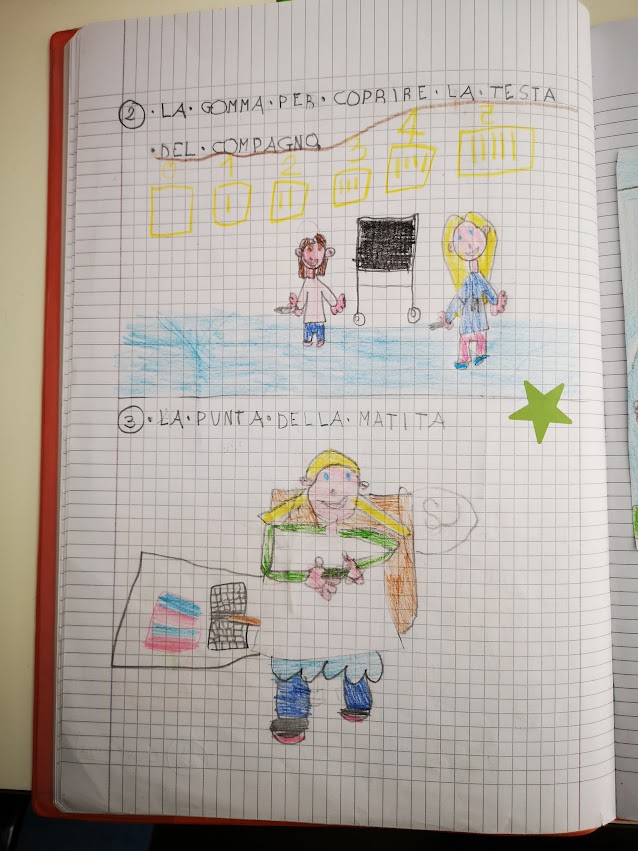 ②·LA·GOMMA·PER·COPRIRE·LA·TESTA
·DEL·COMPAGNO
1 2 3 4
③·LA·PUNTA·DELLA·MATITA